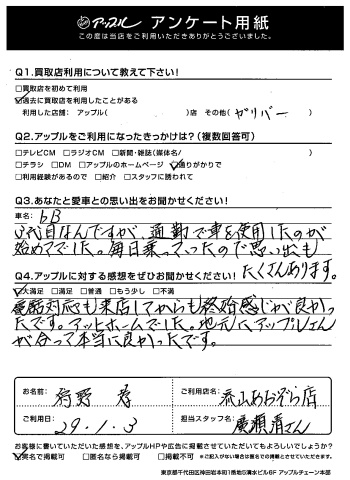 アップル アンケート用紙
この度は当店をご利用いただきありがとうございました。
Q1.買取店利用について教えて下さい!
□買取店を初めて利用
☑過去に買取店を利用したことがある
利用した店舗: アップル( )店 その他( ガリバー )
Q2.アップルをご利用になったきっかけは?(複数回答可)
□テレビCM □ラジオCM □新聞・雑誌(媒体名/ )
□チラシ □DM □アップルのホームページ ☑通りがかりで
□利用経験があるので □紹介 □スタッフに誘われて
Q3.あなたと愛車との思い出をお聞かせください!
車名: bB
3代目なんですが、通勤で車を使用したのが
始めてでした。毎日乗っていったので思い出も
たくさんあります。
Q4.アップルに対する感想をぜひお聞かせください!
☑大満足 □満足 □普通 □もう少し □不満
電話対応も来店してからも終始感じが良かっ
たです。アットホームでした。地元にアップルさん
が合って本当に良かったです。
お名前: 狩野 孝
ご利用店名: 流山おおぞら店
ご利用日: 29.1.3
担当スタッフ名: 廣瀬 さん
お客様に書いていただいた感想を、アップルHPや広告に掲載させていただいてもよろしいでしょうか?
☑実名で掲載可 □匿名なら掲載可 □掲載不可 ※ご記入がない場合は匿名での掲載とさせていただきます。
東京都千代田区神田岩本町1番地5清水ビル6F アップルチェーン本部